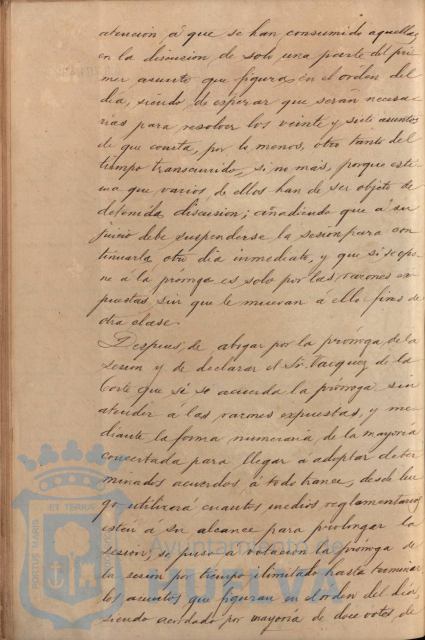 atención á que se han consumido aquellas
en la discusion de solo una parte del pri-
mer asunto que figura en el órden del
dia, siendo de esperar que serán necesa-
rias para resolver los veinte y siete asuntos
de que consta, por lo menos, otro tanto del
tiempo transcurrido, si no mas, porque esti-
ma que varios de ellos han de ser objeto de
detenida discusion; añadiendo que á su
juicio debe suspenderse la sesión para con
tinuarla otro dia inmediato, y que si se opo-
ne á la prórroga es solo por las razones ex-
puestas sin que le muevan á ello fines de
otra clase.
Despues de abogar por la prórroga de la
sesion y de declarar el Sr. Vazquez de la
Corte que si se acuerda la prórroga sin
atender á las razones expuestas, y me-
diante la forma numeraria de la mayoría
concertada para llegar á adoptar deter
minados acuerdos á todo trance, desde lue
go utilizará cuantos medios reglamentarios
estén á su alcance para prolongar la
sesion; se puso á votación la prórroga de
la sesion por tiempo ilimitado hasta terminar
los asuntos que figuran en el órden del dia,
siendo acordado por mayoría de doce votos, de
Ayuntamiento de
PORTUS MARIS
ET TERRAE